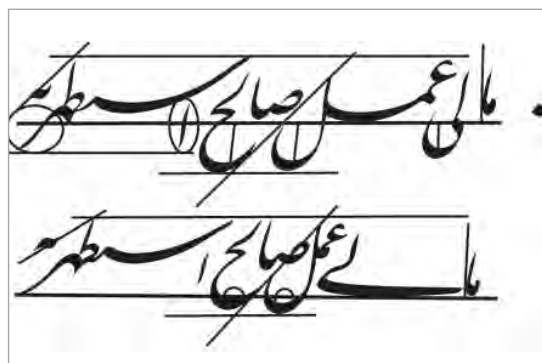 مالی عمل صالح استظهر به
مالی عمل صالح استظهر به